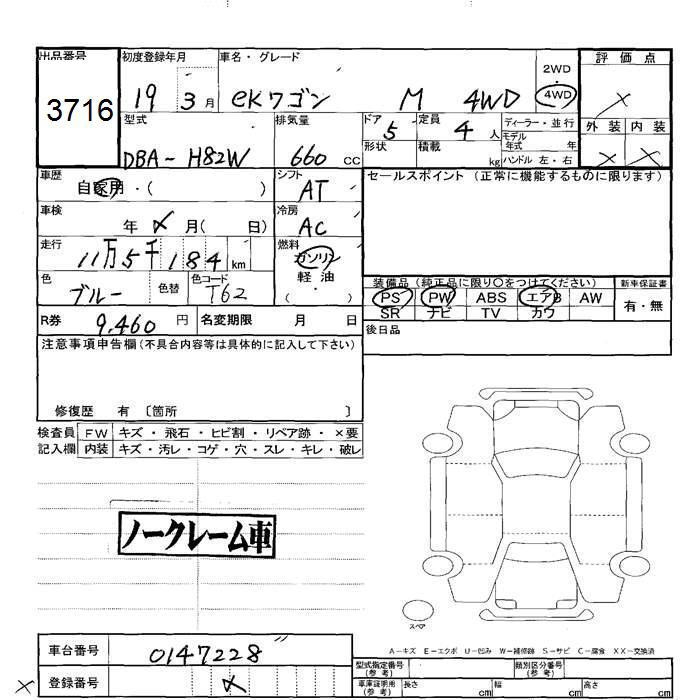 出品番号 初度登録年月 車名・グレード 評価点
3716 19 3月 eKワゴン M 4WD 2WD ・ 4WD ×
型式 排気量 ドア 定員 ディーラー・並行 外装 内装
DBA-H82W 660 CC 5 4人 モデル年式 年 × ×
形状 積載 kg ハンドル 左・右
車歴 シフト セールスポイント (正常に機能するものに限ります)
自家用・( ) AT
車検 冷房
年 × 月( 日) AC
走行 燃料
11万5千184 km ガソリン
色 色替 色コード 軽油
ブルー T62 ・( )
装備品 (純正品に限り○をつけてください) 新車保証書
PS PW ABS エアB AW 有・無
SR ナビ TV カワ
R券 9,460 円 名変期限 月 日
後日品
注意事項申告欄(不具合内容等は具体的に記入して下さい)
修復歴 有 〔箇所 〕
検査員 FW キズ・飛石・ヒビ割・リペア跡・×要
記入欄 内装 キズ・汚レ・コゲ・穴・スレ・キレ・破レ
ノークレーム車
スペア
A-キズ E-エクボ U-凹み W-補修跡 S-サビ C-腐食 XX-交換済
車台番号 0147228
型式指定番号(参考) 類別区分番号(参考)
× 登録番号 ×
車庫証明用(参考) 長さ cm 幅 cm 高さ cm